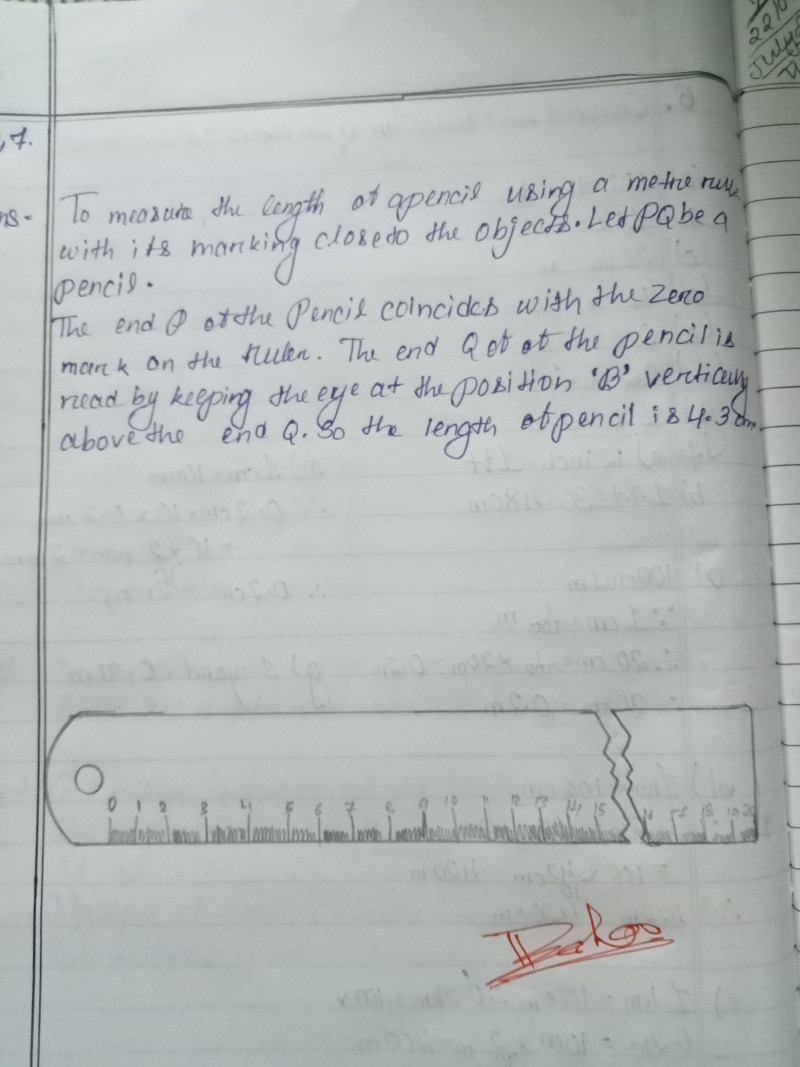 22/0
July
7.
ns-
To measure the length of a pencil using a metre rule
with its marking close to the objects. Let PQ be a
pencil.
The end P of the Pencil coincides with the zero
mark on the ruler. The end Q of of the pencil is
read by keeping the eye at the position 'B' vertically
above the end Q. So the length of pencil is 4.3 cm.
0 1 2 3 4 5 6 7 8 9 10 11 12 13 14 15 16 17 18 19 20